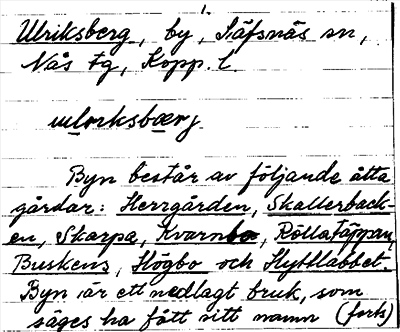 1.
Ulriksberg, by, Säfsnäs sn,
Nås tg, Kopp. l.
ulrıksbærj.
Byn består av följande åtta
gårdar: Herrgården, Skallerback-
en, Skarpa, Kvarnbo, Rölla, Täppan,
Buskens, Högbo och Hyttlabbet.
Byn är ett nedlagt bruk, som
säges ha fått sitt namn (forts)